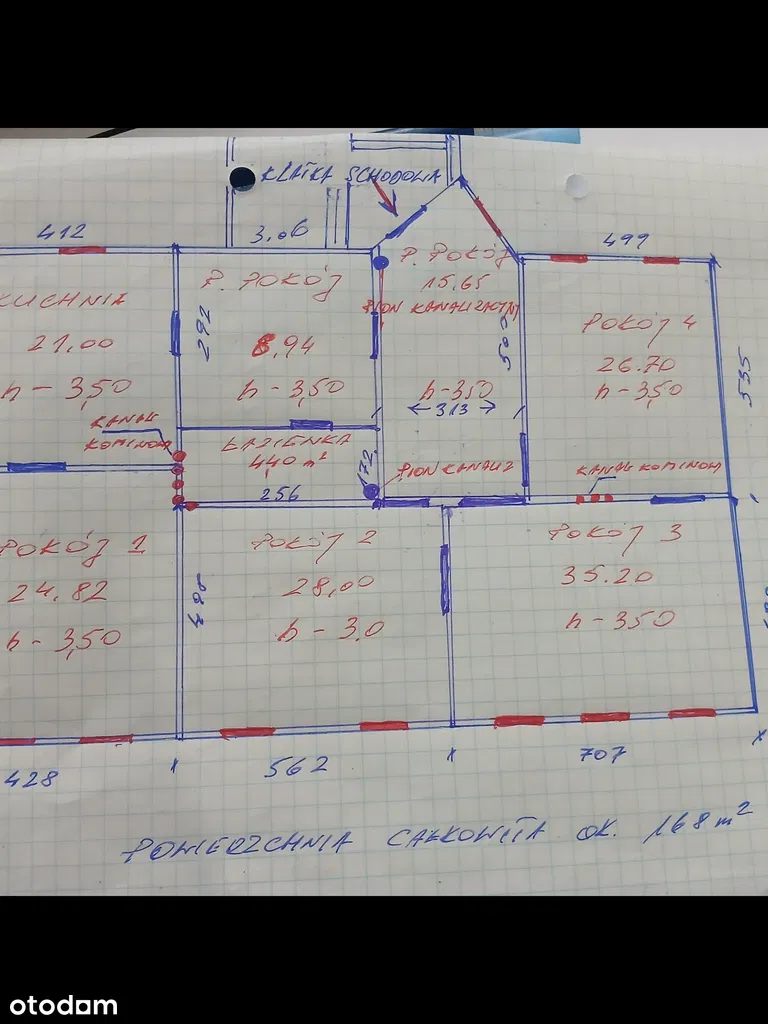 KLATKA SCHODOWA
412
3.06
499
KUCHNIA
21,00
h - 3,50
P. POKÓJ
8,94
h - 3,50
292
P. POKÓJ
15.65
PION KANALIZACYJNY
h - 350
313
500
POKÓJ 4
26.70
h - 3,50
535
KANAŁ
KOMINOW
ŁAZIENKA
4,40 m²
256
172
PION KANALIZ
KANAŁ KOMINOW
POKÓJ 1
24,82
h - 3,50
POKÓJ 2
28,00
h - 3.0
POKÓJ 3
35.20
h - 350
428
562
707
POWIERZCHNIA CAŁKOWITA OK. 168 m²
otodom